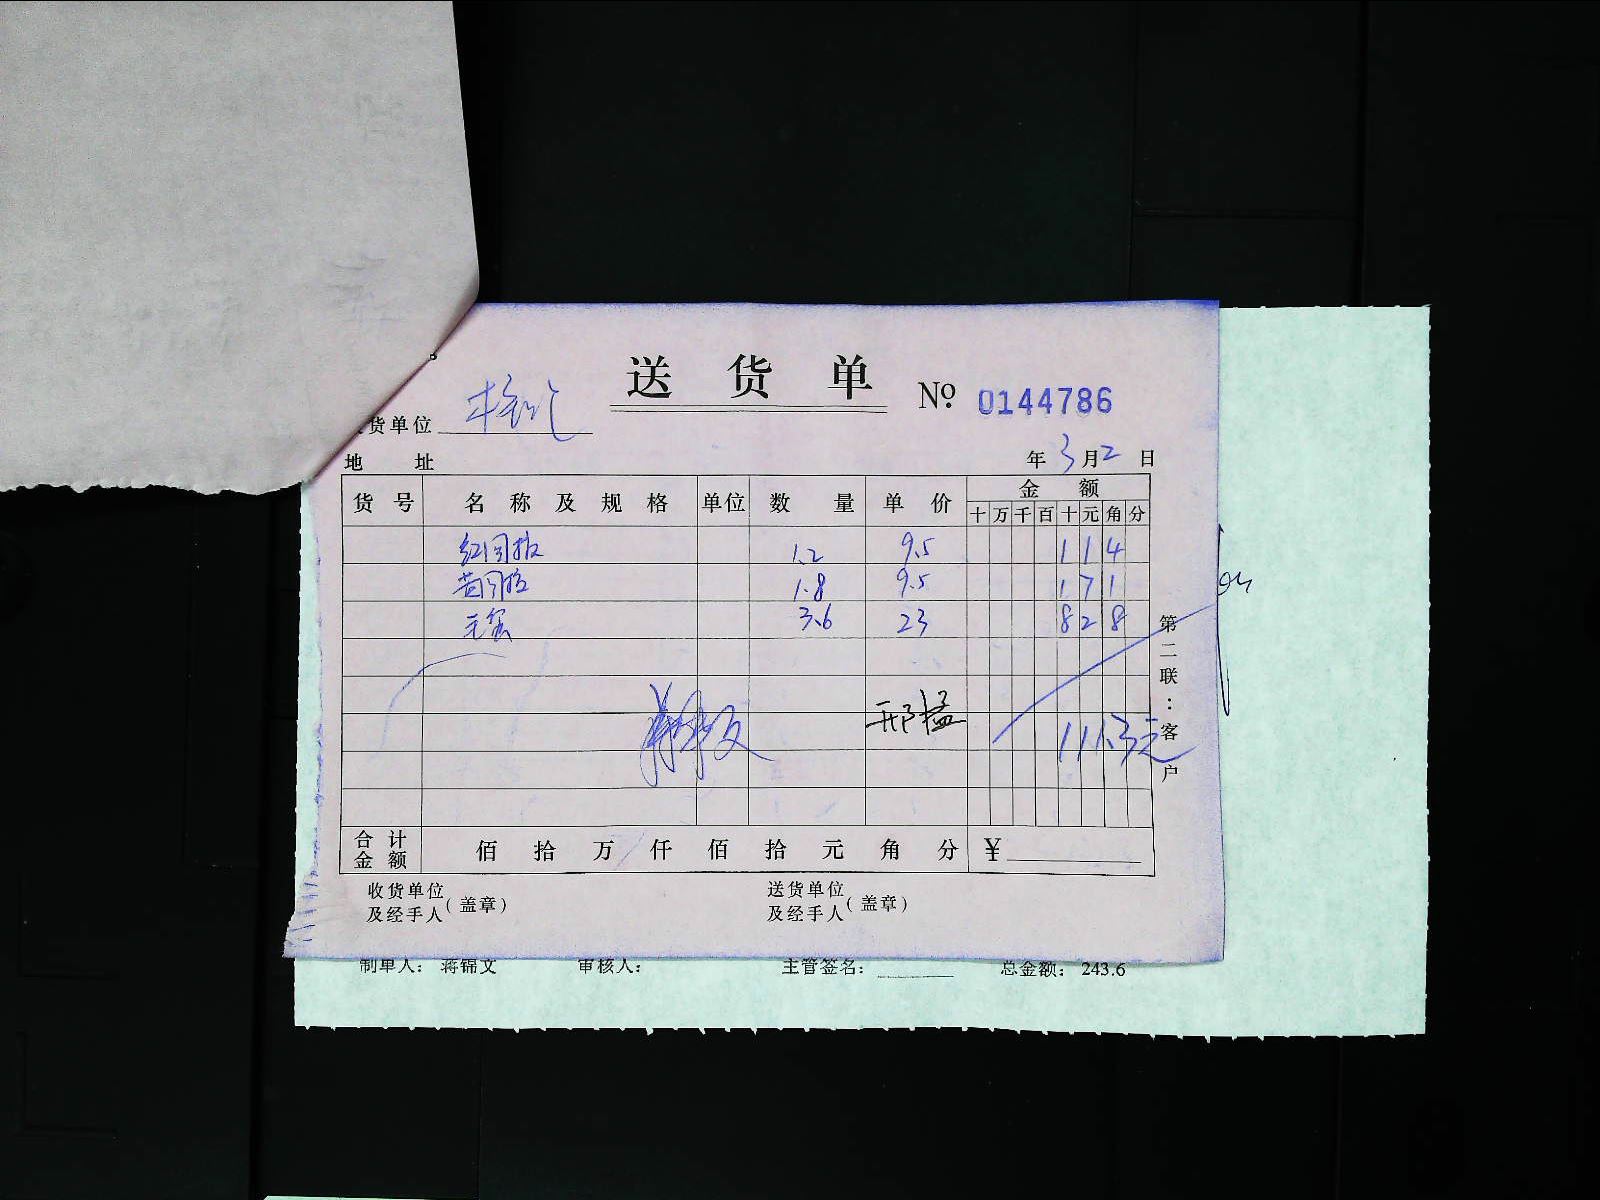 送货单 № 0144786
货单位
地 址 年 3 月 2 日
货号 名称及规格 单位 数量 单价 金额
十 万 千 百 十 元 角 分
红 1.2 9.5 1 1 4
1.8 9.5 1 7 1
3.6 23 8 2 8
邢猛
111.3元
合计金额 佰 拾 万 仟 佰 拾 元 角 分 ¥
收货单位及经手人(盖章) 送货单位及经手人(盖章)
第二联:客户
制单人: 蒋锦文 审核人: 主管签名: 总金额: 243.6